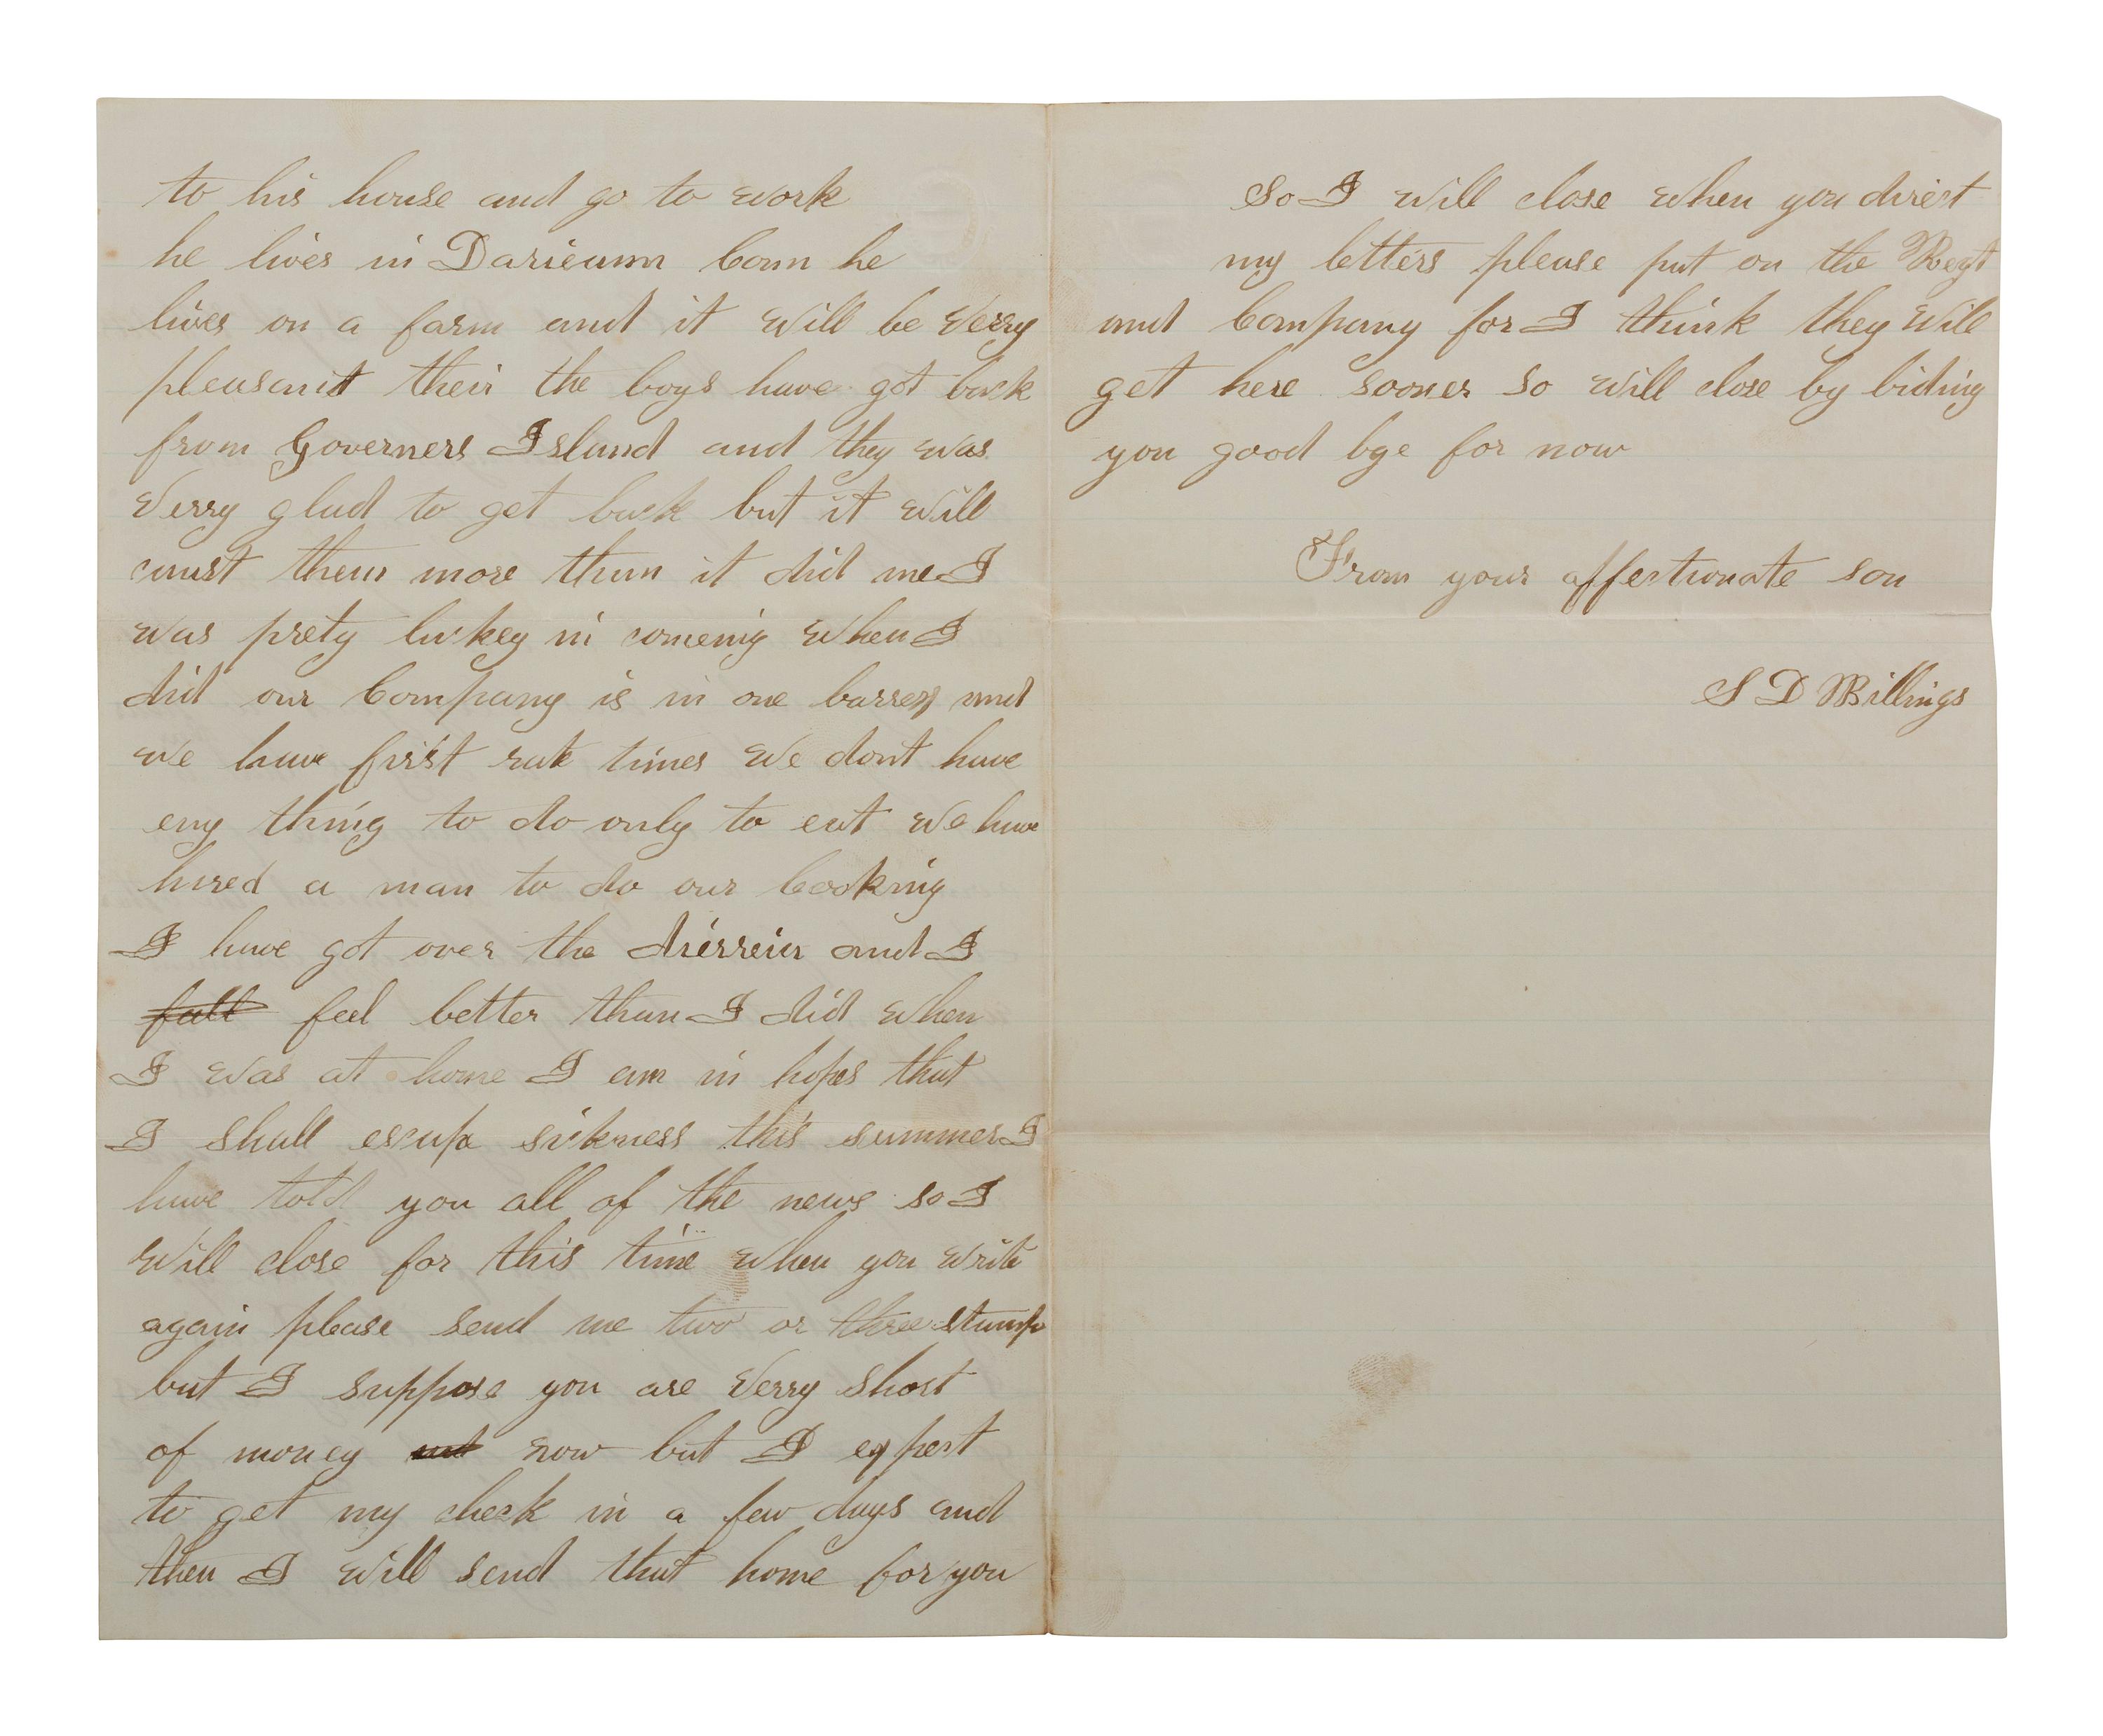 to his house and go to work
he lives in Darieunn Conn he
lives on a farm and it will be verry
pleasant their the boys have got back
from Governers Island and they was
verry glad to get back but it will
caust them more than it did me I
was prety luckey in comeing when I
did our Company is in one barrex and
we have first rate times we dont have
eny thing to do only to eat we have
hired a man to do our Cooking
I have got over the dierreier and I
fall feel better than I did when
I was at home I am in hopes that
I shall escape sickness this summer I
have told you all of the news so I
will close for this time when you write
again please send me two or three stamps
but I suppose you are verry short
of money now but I expect
to get my check in a few days and
then I will send that home for you
So I will close when you direct
my letters please put on the Regt
and Company for I think they will
get here sooner so will close by biding
you good bye for now
From your affectionate son
S D Billings